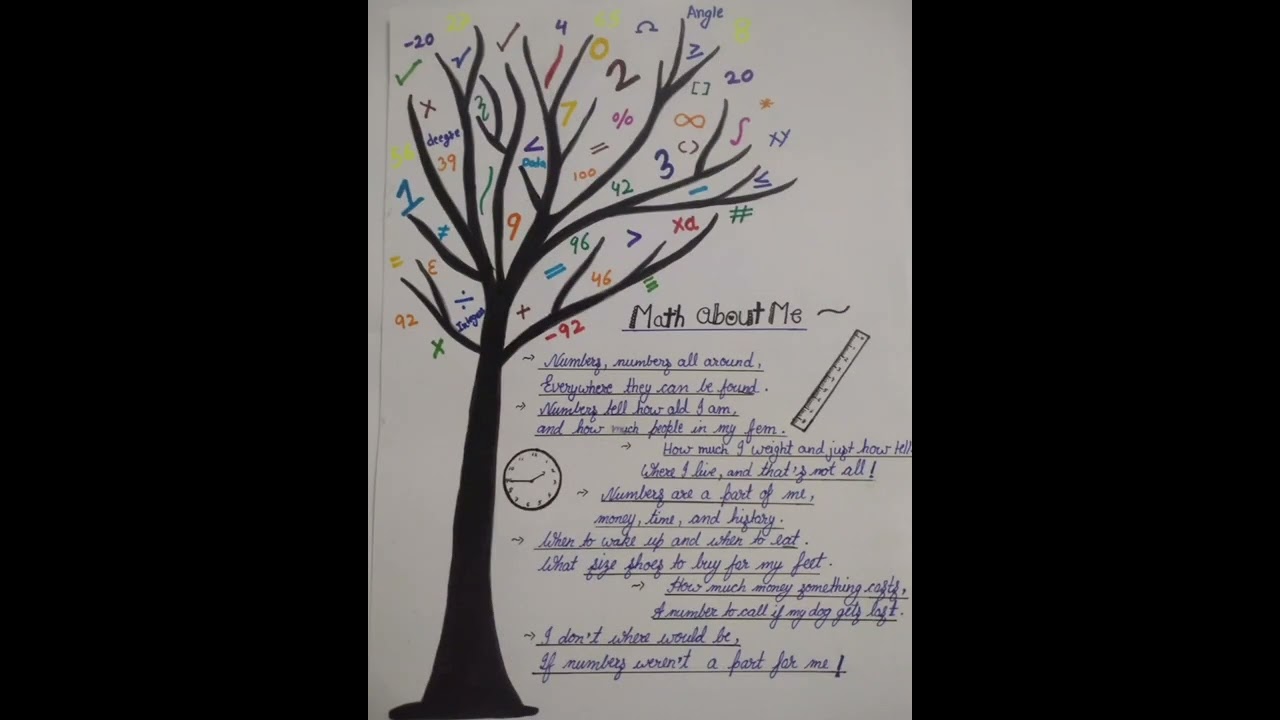 Angle
4
-20
0
2
≥
[ ]
20
*
✓
✓
✓
x
deegre
39
7
%
∞
=
<
Data
100
3
< >
∫
xy
42
-
≤
#
1
≠
9
96
>
xa
=
ε
÷
Integer
=
46
≡
92
x
+
-92
Math about Me ~
→ Numbers, numbers all around,
Everywhere they can be found.
→ Numbers tell how old I am,
and how much people in my fem.
→ How much I weight and just how tell
Where I live, and that's not all!
→ Numbers are a part of me,
money, time, and history.
→ When to wake up and when to eat.
What size shoes to buy for my feet.
→ How much money something costs,
A number to call if my dog gets lost.
→ I don't where would be,
If numbers weren't a part for me!